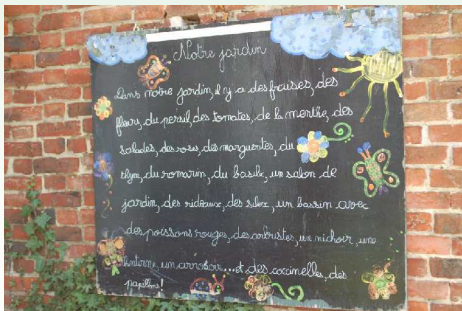 Notre jardin
Dans notre jardin, il y a des fraises, des
fleurs, du persil, des tomates, de la menthe, des
salades, des roses, des marguerites, du
thym, du romarin, du basilic, un salon de
jardin, des rideaux, des silex, un bassin avec
des poissons rouges, des arbustes, un nichoir, une
lanterne, un arrosoir...et des coccinelles, des
papillons!